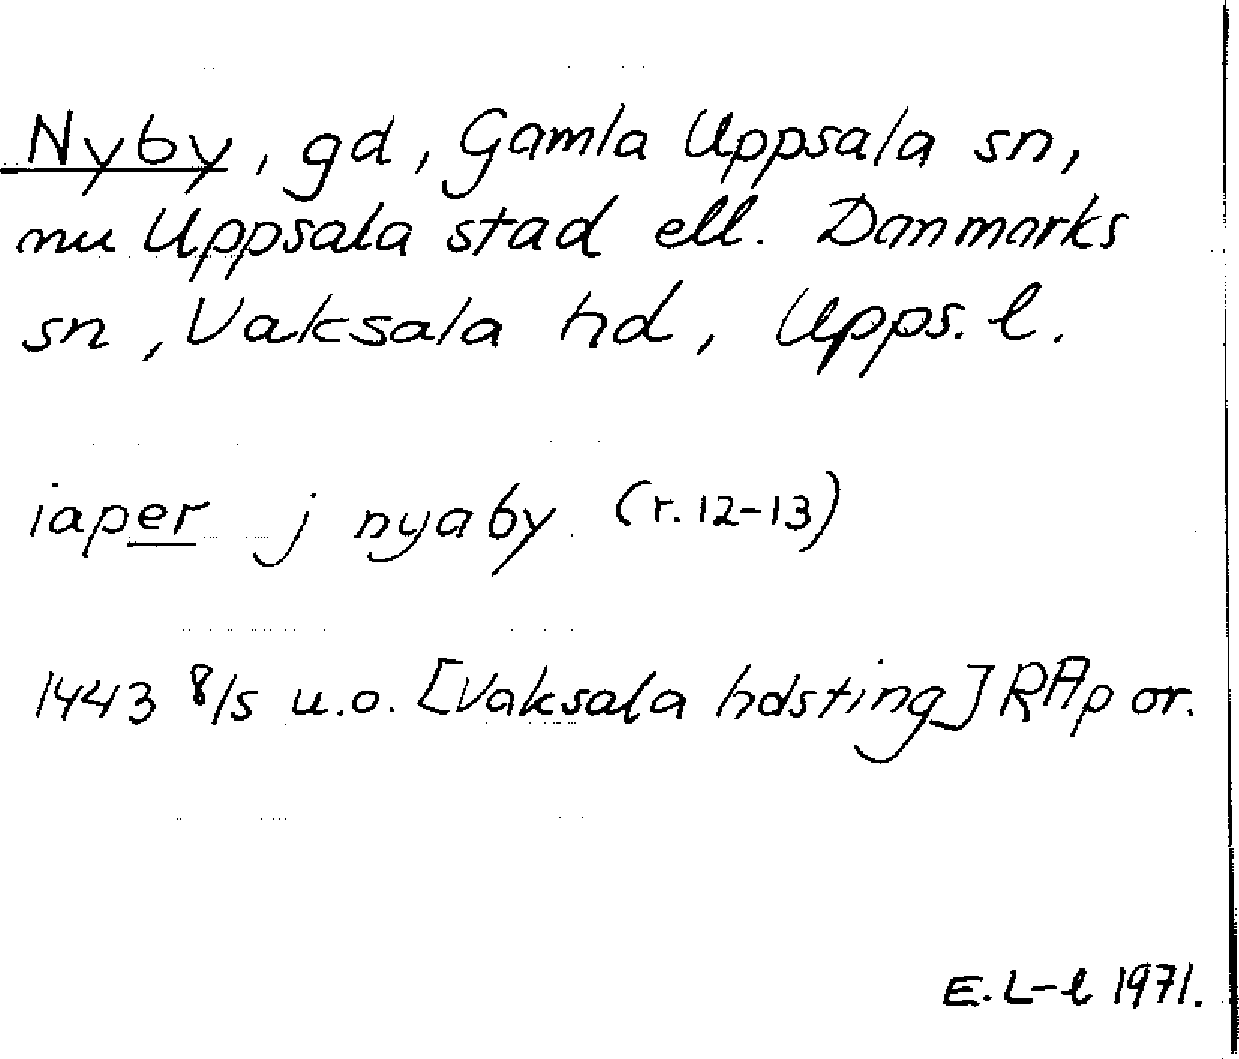 Nyby, gd, Gamla Uppsala sn,
nu Uppsala stad ell. Danmarks
sn, Vaksala hd, Upps. l.
iaper j nyaby (r. 12-13)
1443 8/5 u.o. [Vaksala hdsting] RAp or.
E. L-l 1971.